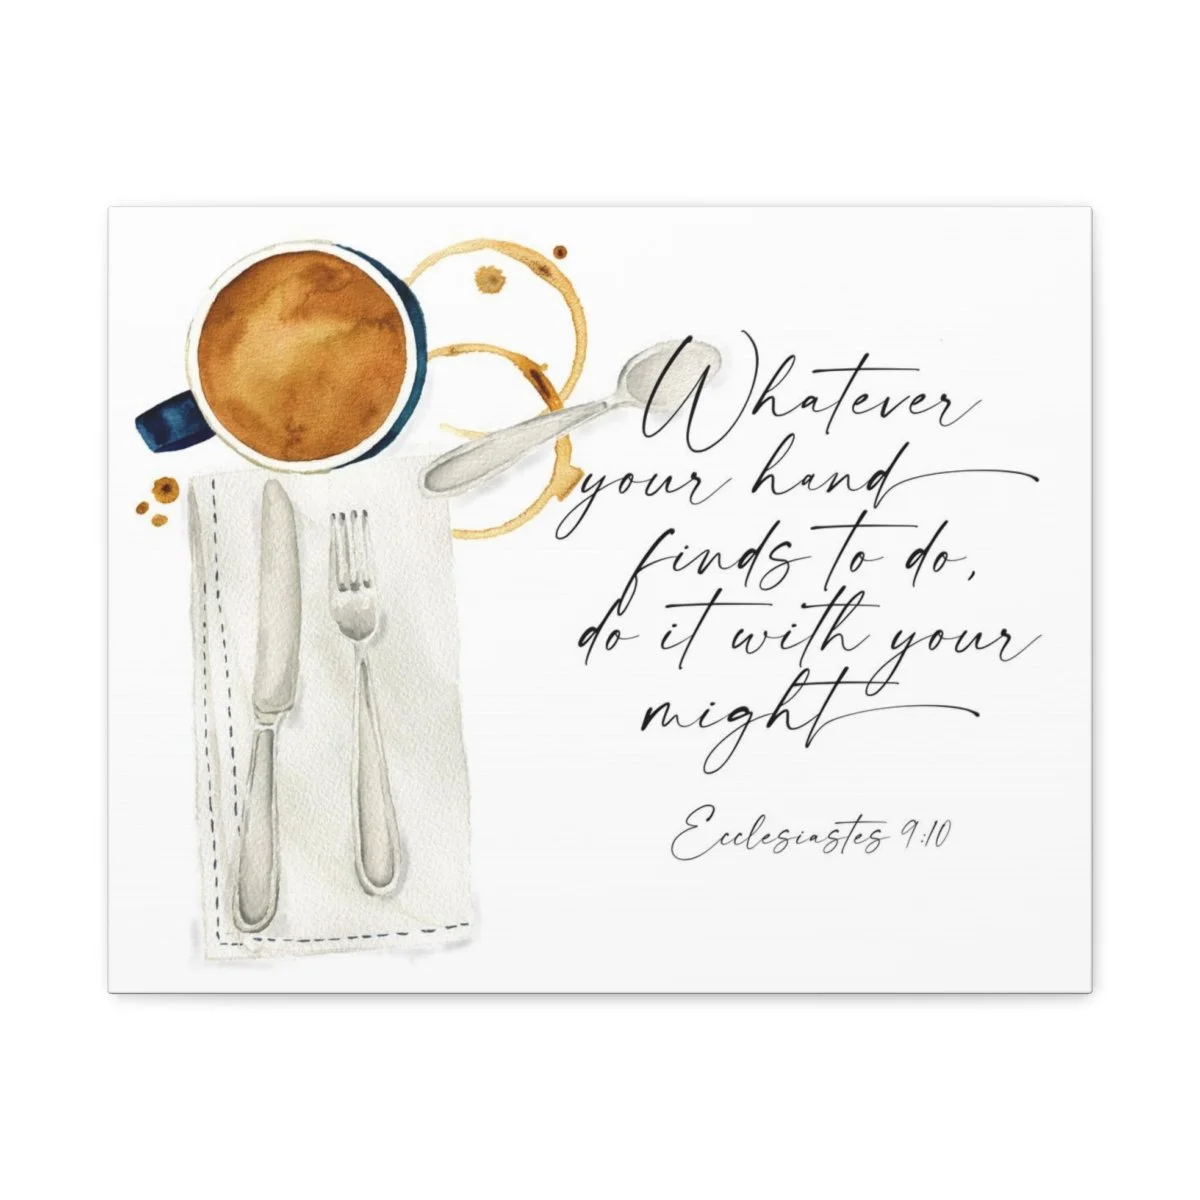 Whatever
your hand
finds to do,
do it with your
might
Ecclesiastes 9:10